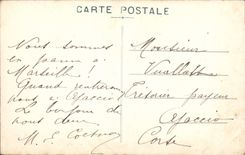 CARTE POSTALE
Nous sommes
en panne à
Marseille !
Quand rentrerons
nous à Ajaccio ?
Le bonjour de
nous deux
M. E.
Monsieur
Trésorier payeur
Ajaccio
Corse